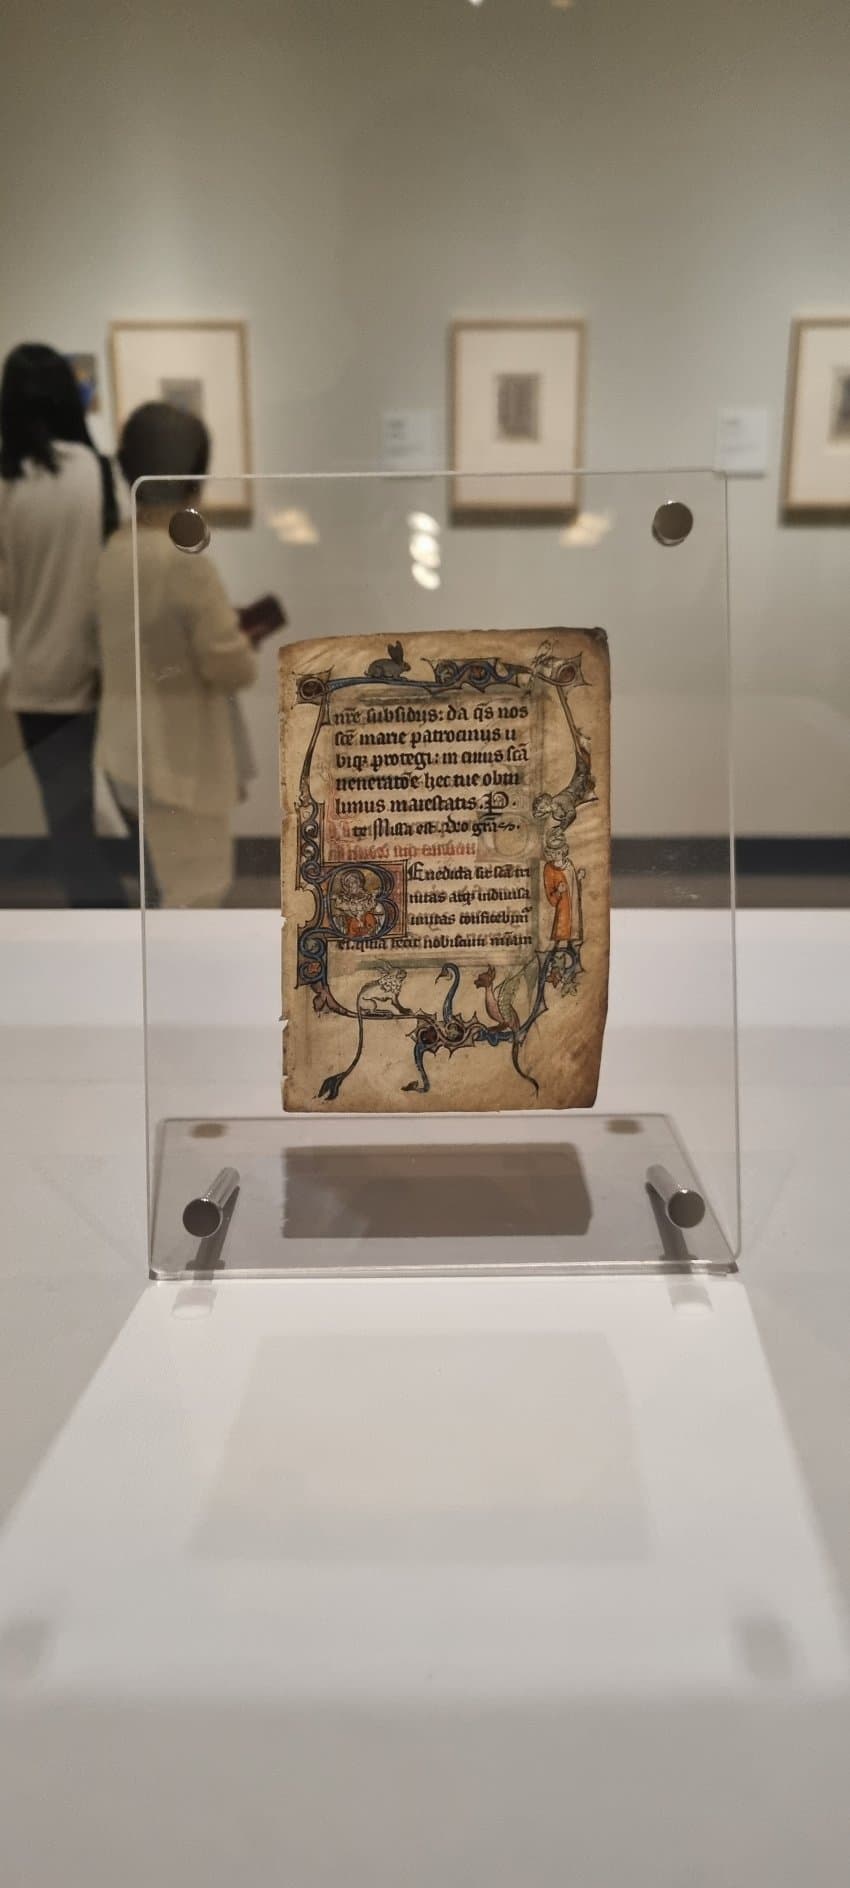 nr̃e subsidijs: da q̃s nos
sc̃e marie patrocinus u
biqꝫ protegi: in cuius sc̃a
ueneratõe hec tue obtu
limus maiestatis. P.
te Missa est. Deo gr̃as.
Enedicta sit sc̃a tri
nitas atqꝫ indiuisa
unitas confitebim̃
ei. quia fecit nobiscum